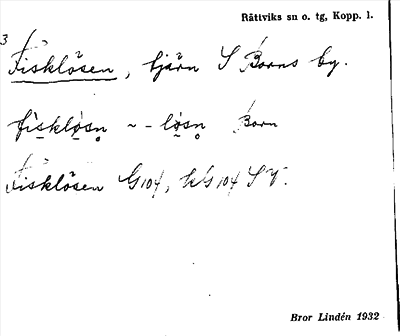 Rättviks sn o. tg, Kopp. l.
3
Fisklösen, tjärn S Borns by.
fisklosn ~ - losn Born
Fisklösen G104, kG104 SV.
Bror Lindén 1932